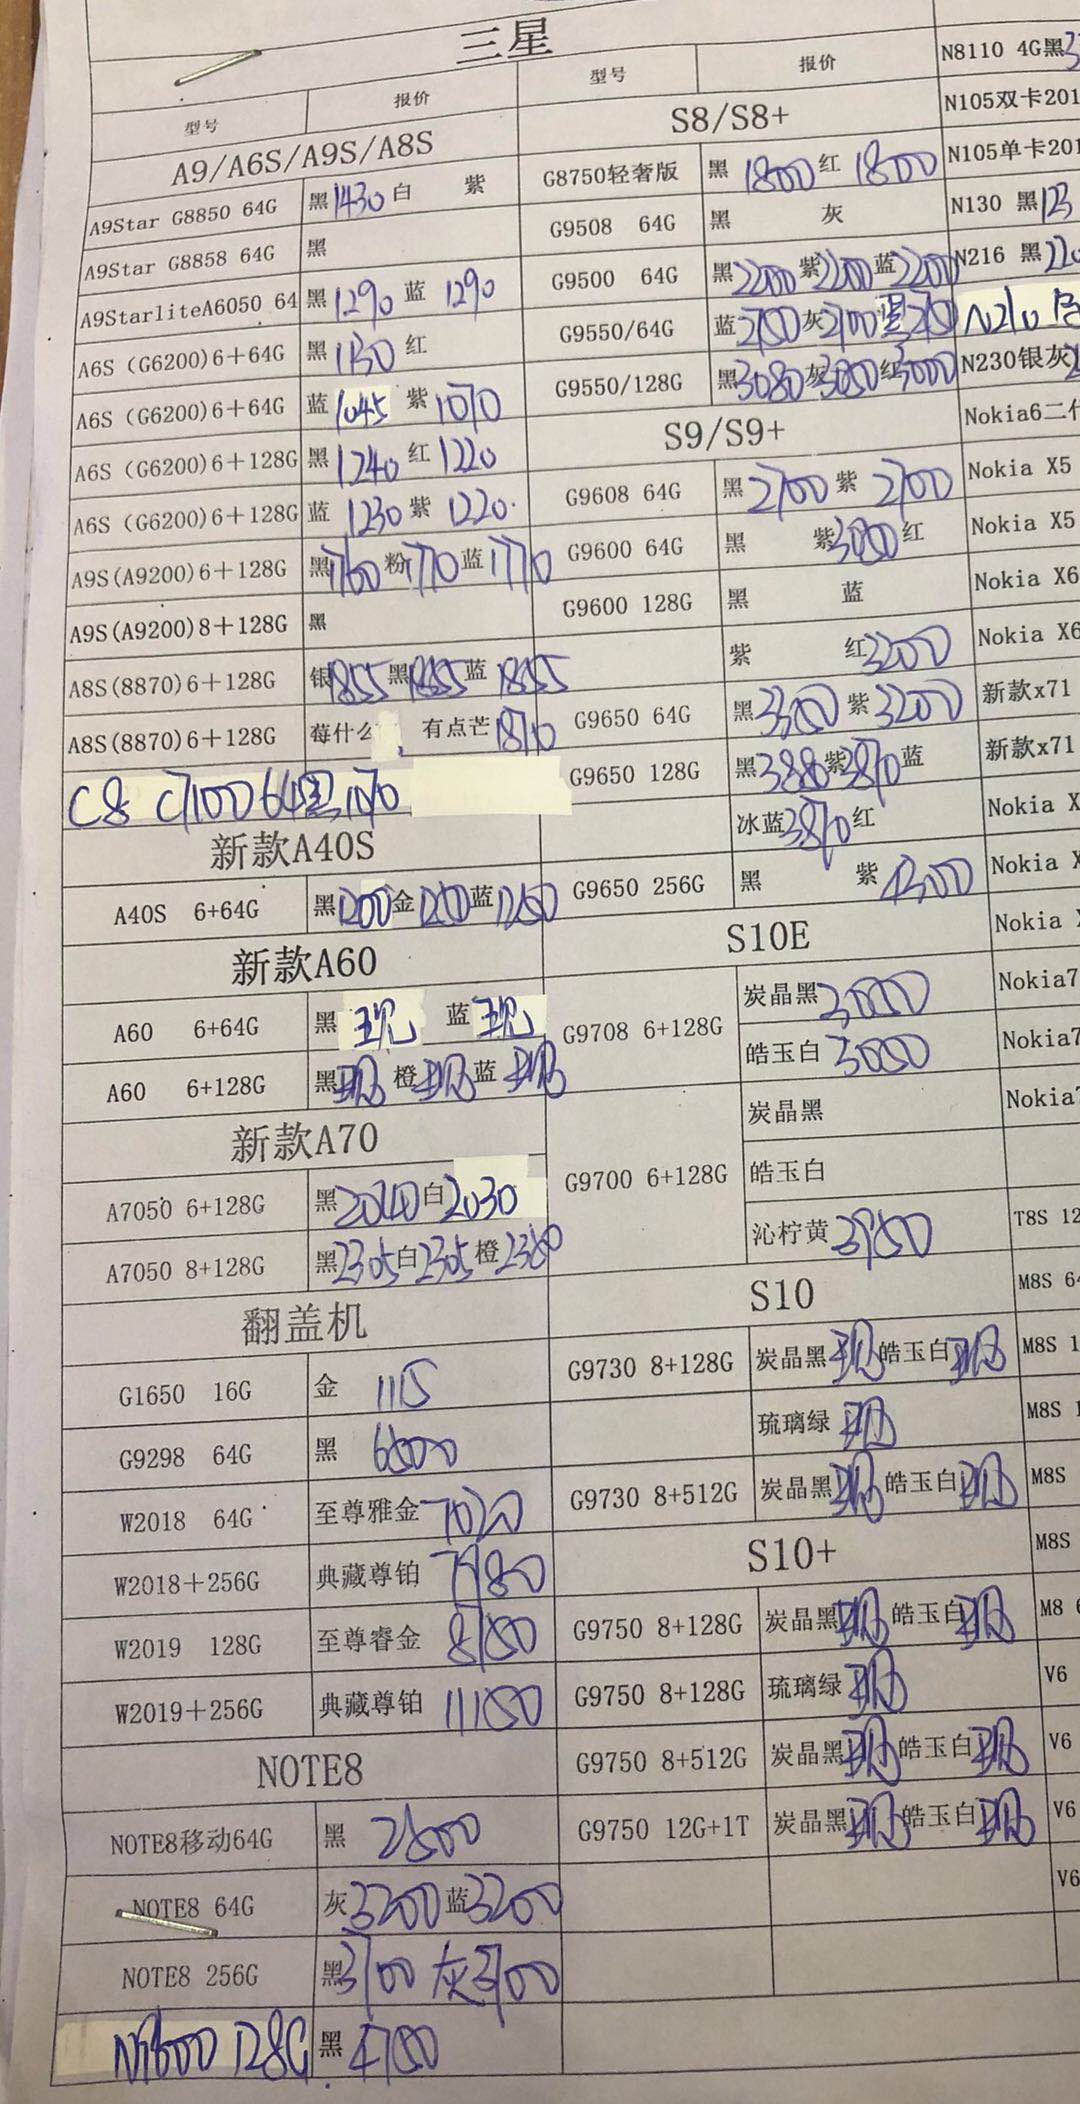 三星
型号 报价
A9/A6S/A9S/A8S
A9Star G8850 64G 黑1430 白 紫
A9Star G8858 64G 黑
A9StarliteA6050 64 黑1290 蓝 1290
A6S (G6200)6+64G 黑1130 红
A6S (G6200)6+64G 蓝1045 紫1070
A6S (G6200)6+128G 黑1240 红1220
A6S (G6200)6+128G 蓝 1230 紫 1220
A9S(A9200)6+128G 黑1760 粉1770 蓝1770
A9S(A9200)8+128G 黑
A8S(8870)6+128G 银1855 黑1855 蓝 1855
A8S(8870)6+128G 莓什么 有点芒1870
C8 C7100 64黑1070
新款A40S
A40S 6+64G 黑1200 金1200 蓝1250
新款A60
A60 6+64G 黑 现 蓝 现
A60 6+128G 黑现 橙现 蓝 现
新款A70
A7050 6+128G 黑2040 白2030
A7050 8+128G 黑2305 白2305 橙2380
翻盖机
G1650 16G 金 1115
G9298 64G 黑
W2018 64G 至尊雅金 7020
W2018+256G 典藏尊铂 7980
W2019 128G 至尊睿金 8150
W2019+256G 典藏尊铂 11150
NOTE8
NOTE8移动64G 黑 2800
NOTE8 64G 灰3200 蓝3200
NOTE8 256G 黑3700 灰3700
128G 黑 4750
型号 报价
S8/S8+
G8750轻奢版 黑 1800 红 1800
G9508 64G 黑 灰
G9500 64G 黑2200 紫2200 蓝2200
G9550/64G 蓝2750 灰2700 黑2750
G9550/128G 黑3080 灰3050 红3000
S9/S9+
G9608 64G 黑 2700 紫 2700
G9600 64G 黑 紫3000 红
G9600 128G 黑 蓝
紫 红3200
G9650 64G 黑3300 紫3200
G9650 128G 黑3880 紫3870 蓝
冰蓝3870 红
G9650 256G 黑 紫 4300
S10E
G9708 6+128G 炭晶黑3000
皓玉白 3050
G9700 6+128G 炭晶黑
皓玉白
沁柠黄3950
S10
G9730 8+128G 炭晶黑现 皓玉白现
琉璃绿 现
G9730 8+512G 炭晶黑现 皓玉白现
S10+
G9750 8+128G 炭晶黑现 皓玉白现
G9750 8+128G 琉璃绿现
G9750 8+512G 炭晶黑现 皓玉白现
G9750 12G+1T 炭晶黑现 皓玉白现
N8110 4G黑3
N105双卡201
N105单卡201
N130 黑123
N216 黑220
N210
N230银灰
Nokia6二代
Nokia X5
Nokia X5
Nokia X6
Nokia X6
新款x71
新款x71
Nokia X
Nokia X
Nokia
Nokia7
Nokia7
Nokia7
T8S 12
M8S 64
M8S 1
M8S
M8S
M8S
M8 6
V6
V6
V6
V6